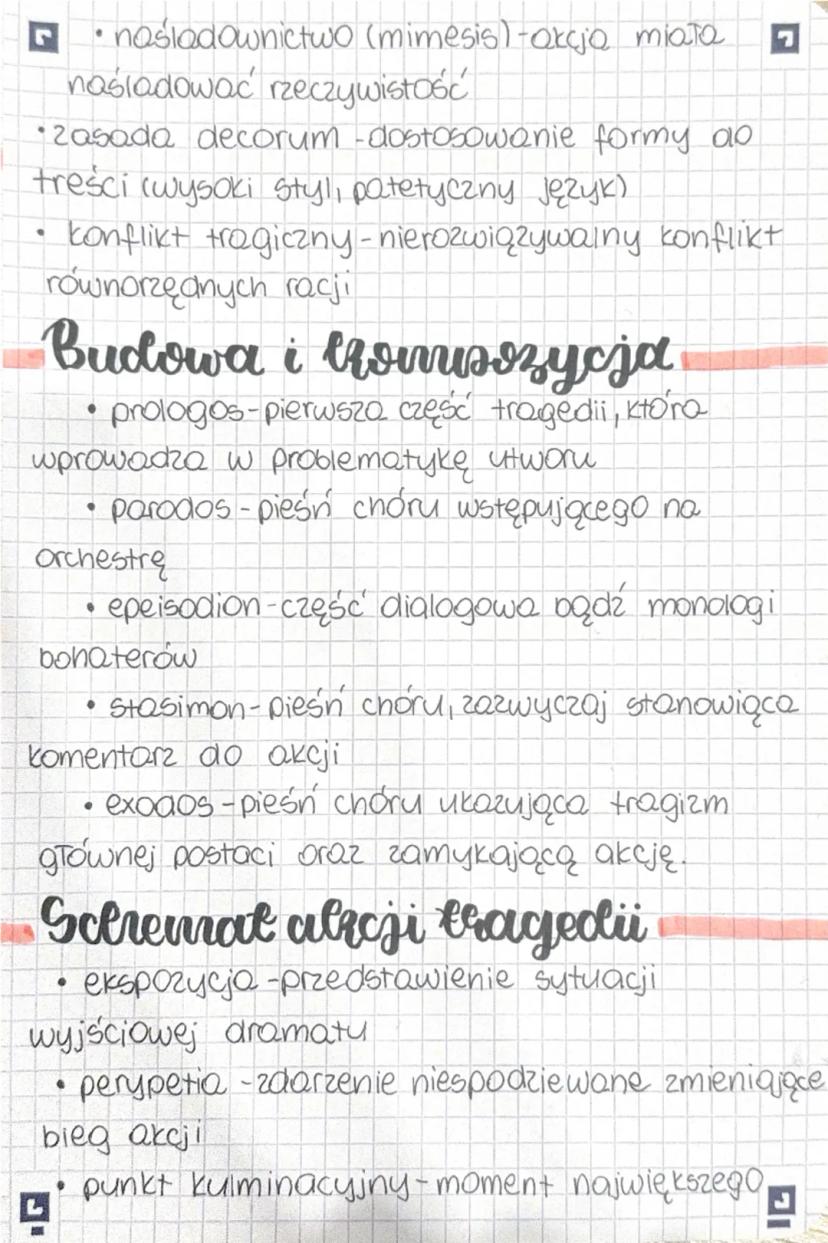 • naśladownictwo (mimesis)-akcja miała
naśladować rzeczywistość
• zasada decorum -dostosowanie formy do
treści (wysoki styl, patetyczny język)
• konflikt tragiczny-nierozwiązywalny konflikt
równorzędnych racji
Budowa i kompozycja
• prologos-pierwsza część tragedii, która
wprowadza w problematykę utworu
• parodos - pieśń chóru wstępującego na
orchestrę
• epeisodion-część dialogowa bądź monologi
bohaterów
• stasimon-pieśń chóru, zazwyczaj stanowiąca
komentarz do akcji
• exodos -pieśń chóru ukazująca tragizm
głównej postaci oraz zamykającą akcję.
Schemat akcji tragedii
• ekspozycja -przedstawienie sytuacji
wyjściowej dramatu
• perypetia -zdarzenie niespodziewane zmieniające
bieg akcji
• punkt kulminacyjny-moment największego